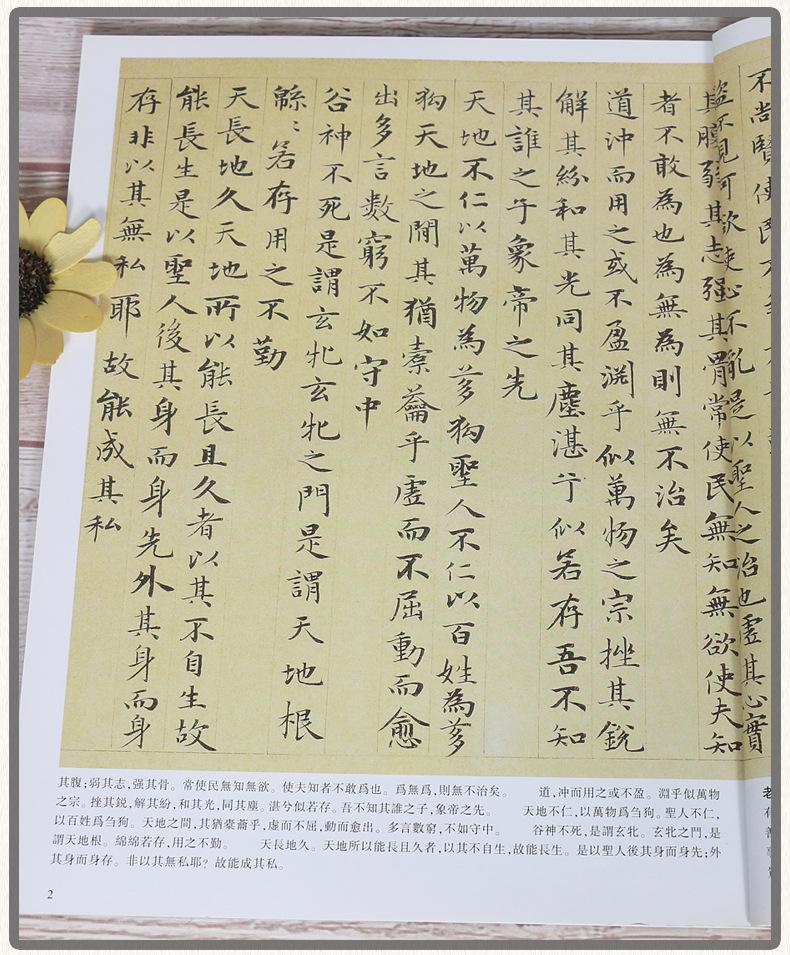 不尚賢使民不
盜不見可欲使心不亂是以聖人之治也虛其心實
其腹弱其志强其骨常使民無知無欲使夫知
者不敢為也為無為則無不治矣
道沖而用之或不盈淵乎似萬物之宗挫其銳
解其紛和其光同其塵湛兮似若存吾不知
其誰之子象帝之先
天地不仁以萬物為芻狗聖人不仁以百姓為芻
狗天地之間其猶橐籥乎虛而不屈動而愈
出多言數窮不如守中
谷神不死是謂玄牝玄牝之門是謂天地根
緜〻若存用之不勤
天長地久天地所以能長且久者以其不自生故
能長生是以聖人後其身而身先外其身而身
存非以其無私耶故能成其私
其腹;弱其志,强其骨。常使民無知無欲。使夫知者不敢爲也。爲無爲,則無不治矣。 道,沖而用之或不盈。淵乎似萬物
之宗。挫其銳,解其紛,和其光,同其塵。湛兮似若存。吾不知其誰之子,象帝之先。 天地不仁,以萬物爲芻狗。聖人不仁,
以百姓爲芻狗。天地之間,其猶橐籥乎,虛而不屈,動而愈出。多言數窮,不如守中。 谷神不死,是謂玄牝。玄牝之門,是
謂天地根。綿綿若存,用之不勤。 天長地久。天地所以能長且久者,以其不自生,故能長生。是以聖人後其身而身先;外
其身而身存。非以其無私耶?故能成其私。
2